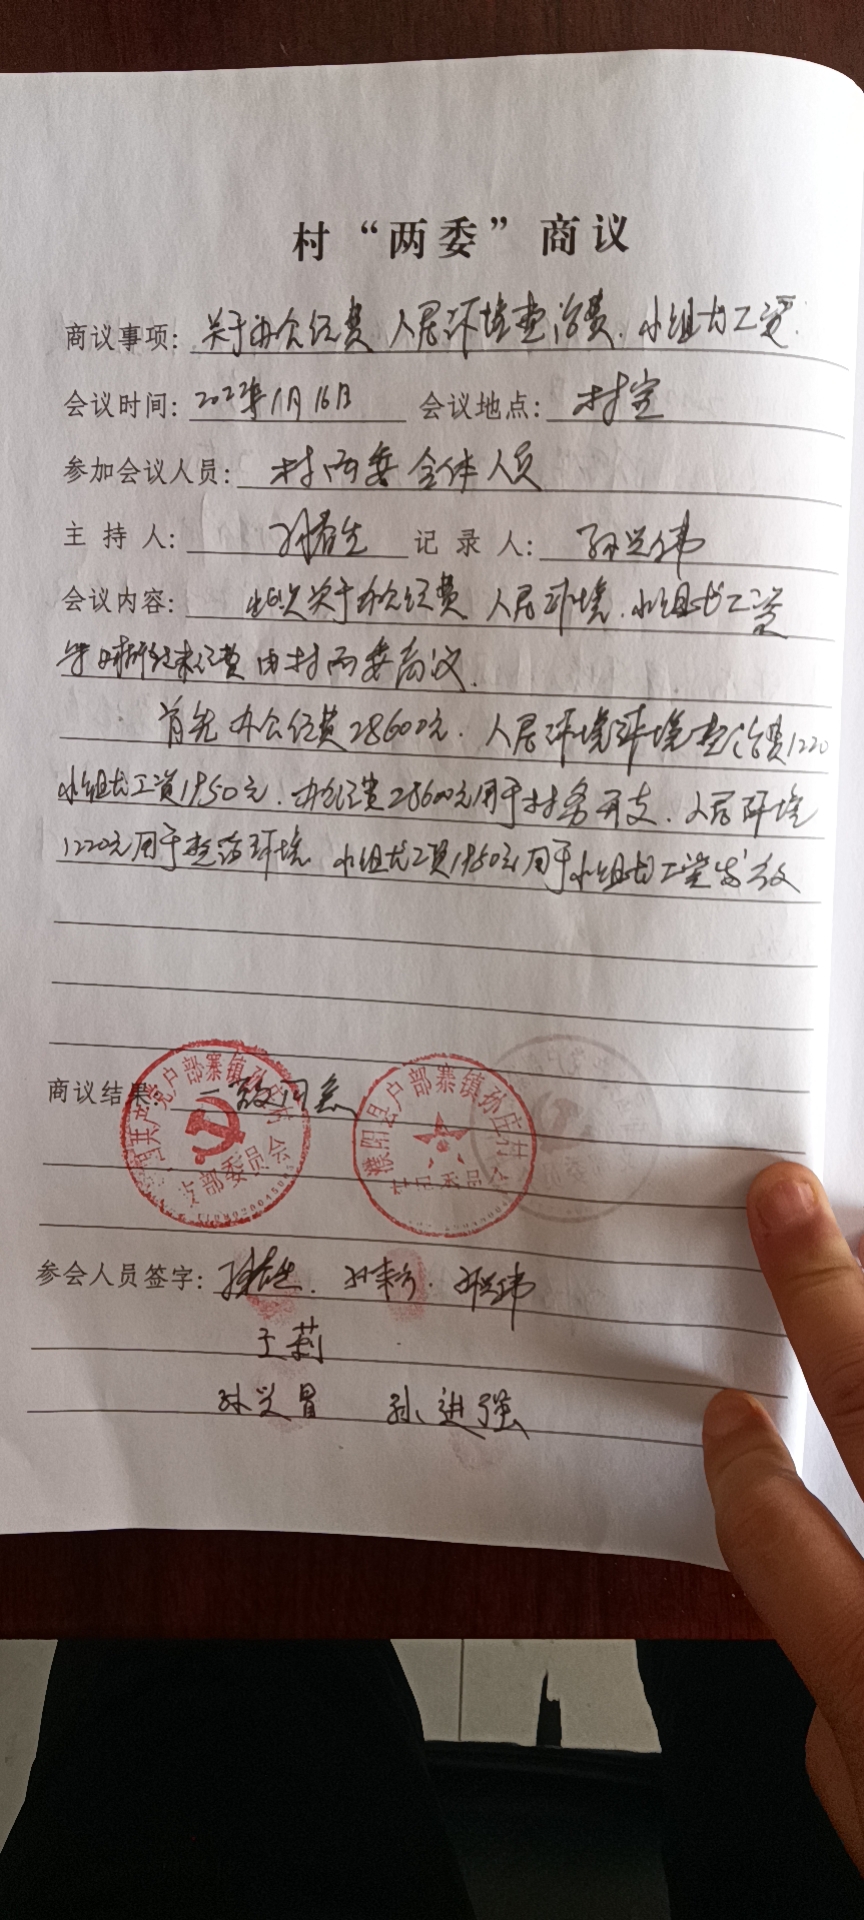 村“两委”商议
商议事项：关于办公经费 人居环境整治费、小组长工资
会议时间：2022年1月16日 会议地点：村室
参加会议人员：村两委全体人员
主持人： 记录人：孙兴伟
会议内容：关于办公经费 人居环境、小组长工资
经费由村两委商议.
首先办公经费28600元. 人居环境环境整治费1220
小组长工资1950元、办公经费28600元用于村务开支、人居环境
1220元用于整治环境 小组长工资1950元用于小组长工资发放
商议结果：一致同意
中国共产党户部寨镇孙庄村
支部委员会
濮阳县户部寨镇孙庄村
村民委员会
参会人员签字： 孙兴伟
王莉
孙兴冒 孙进强